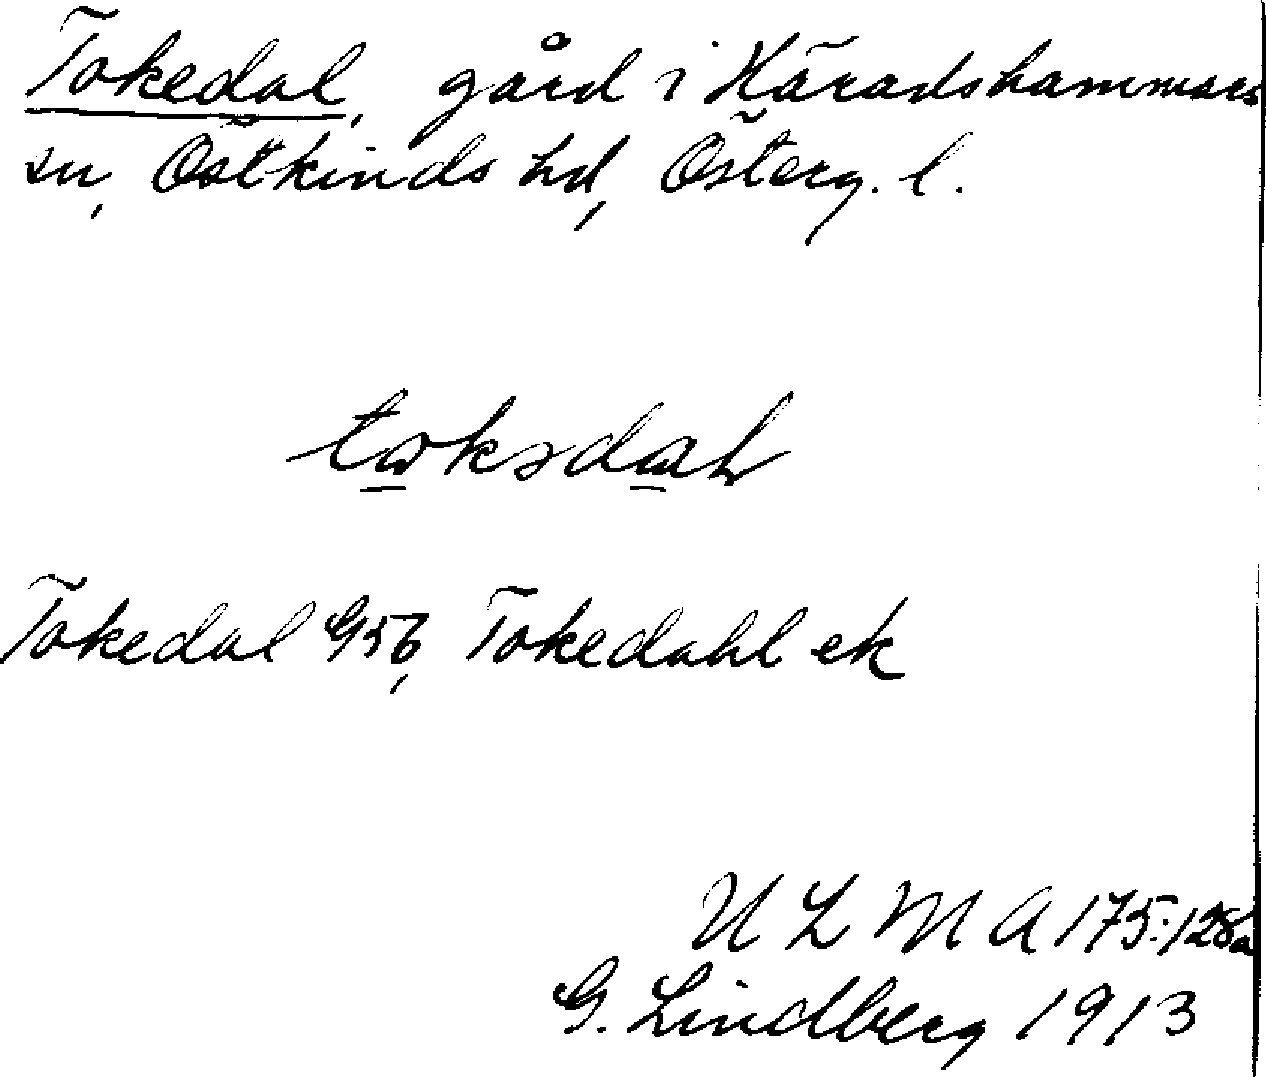 Tokedal, gård i Häradshammars
sn, Östkinds hd, Österg. l.
Tokedal G56, Tokedahl ek
U L M A 175:128a
G. Lindberg 1913